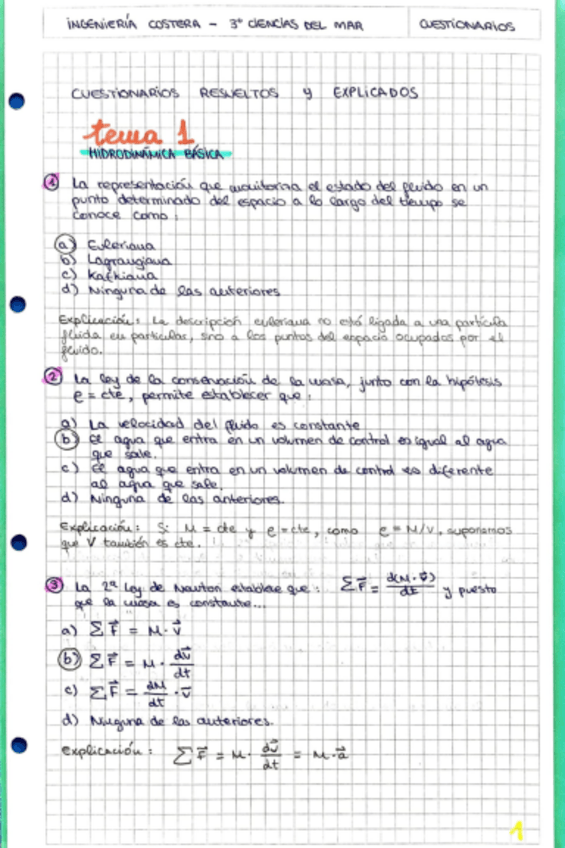 INGENIERÍA COSTERA - 3º CIENCIAS DEL MAR
CUESTIONARIOS
CUESTIONARIOS RESUELTOS Y EXPLICADOS
tema 1
HIDRODINÁMICA BÁSICA
1 La representación que monitoriza el estado del fluido en un
punto determinado del espacio a lo largo del tiempo se
conoce como:
a) Euleriana
b) Lagrangiana
c) Kafkiana
d) Ninguna de las anteriores
Explicación: La descripción euleriana no está ligada a una partícula
fluida en particular, sino a los puntos del espacio ocupados por el
fluido.
2 La ley de la conservación de la masa, junto con la hipótesis
ρ = cte, permite establecer que:
a) La velocidad del fluido es constante
b) El agua que entra en un volumen de control es igual al agua
que sale.
c) El agua que entra en un volumen de control es diferente
al agua que sale.
d) Ninguna de las anteriores.
Explicación: Si M = cte y ρ = cte, como ρ = M/V, suponemos
que V también es cte.
3 La 2ª Ley de Newton establece que: Σ F⃗ = d(M·v⃗)/dt y puesto
que la masa es constante...
a) Σ F⃗ = M · v⃗
b) Σ F⃗ = M · dv⃗/dt
c) Σ F⃗ = dM/dt · v⃗
d) Ninguna de las anteriores.
Explicación: Σ F⃗ = M · dv⃗/dt = M · a⃗
1